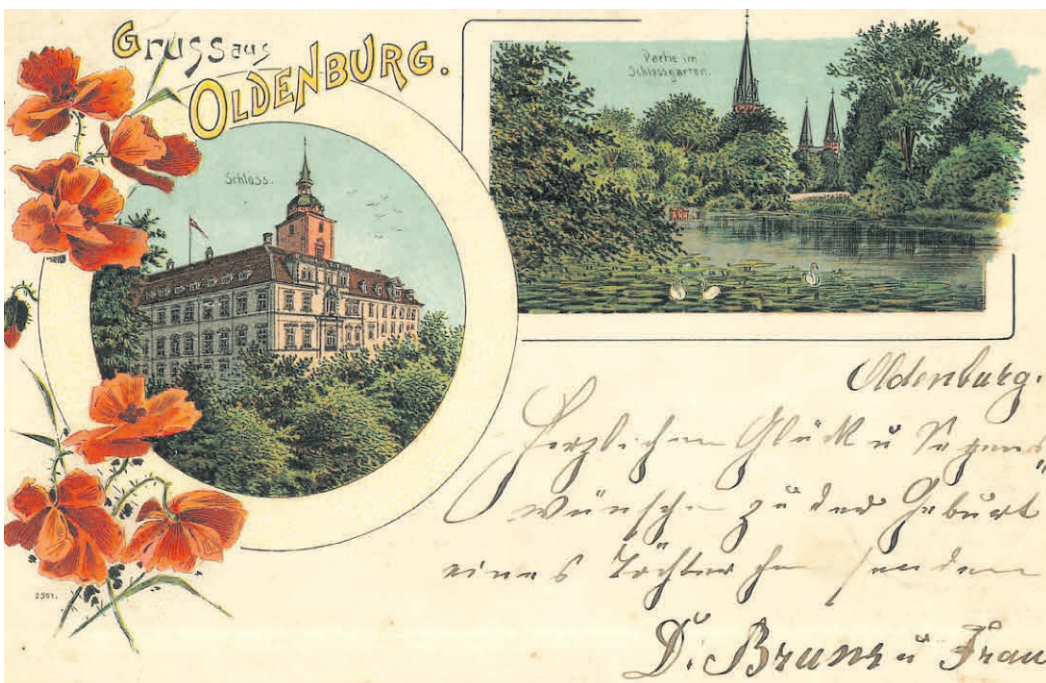 Gruss aus
OLDENBURG.
Schloss.
Partie im
Schlossgarten.
Oldenburg.
Herzlichen Glück u Segens"
wünsche zu der Geburt
eines Töchterchen senden
D. Bruns u Frau
2301.